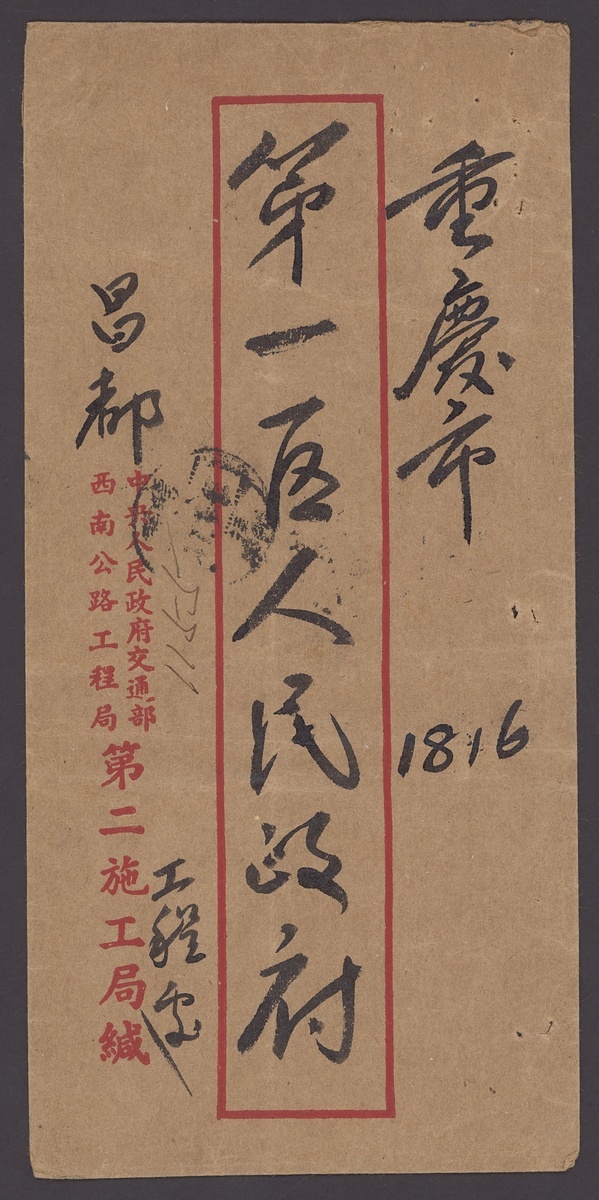 重慶市
1816
第一区人民政府
昌都
中央人民政府交通部
西南公路工程局
第二施工局緘
工程处